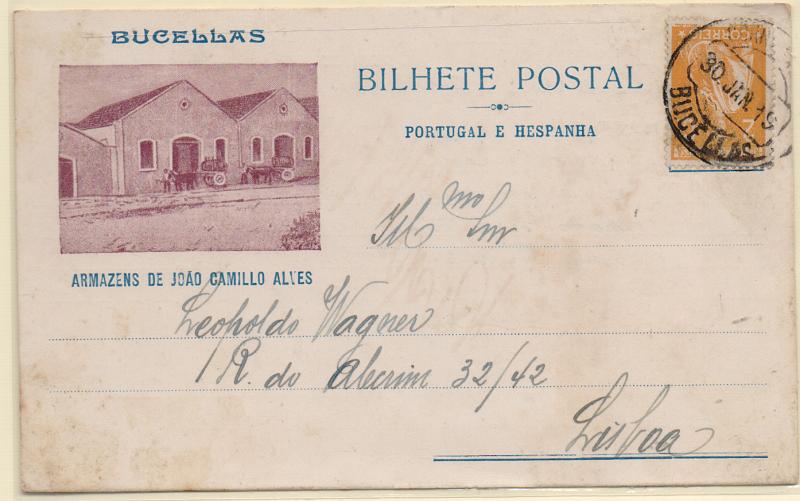 BUCELLAS
BILHETE POSTAL
PORTUGAL E HESPANHA
CORREIO
30 JAN. 19
BUCELLAS
ARMAZENS DE JOÃO CAMILLO ALVES
Ill.mo Snr
Leopoldo Wagner
R. do Alecrim 32/42
Lisboa